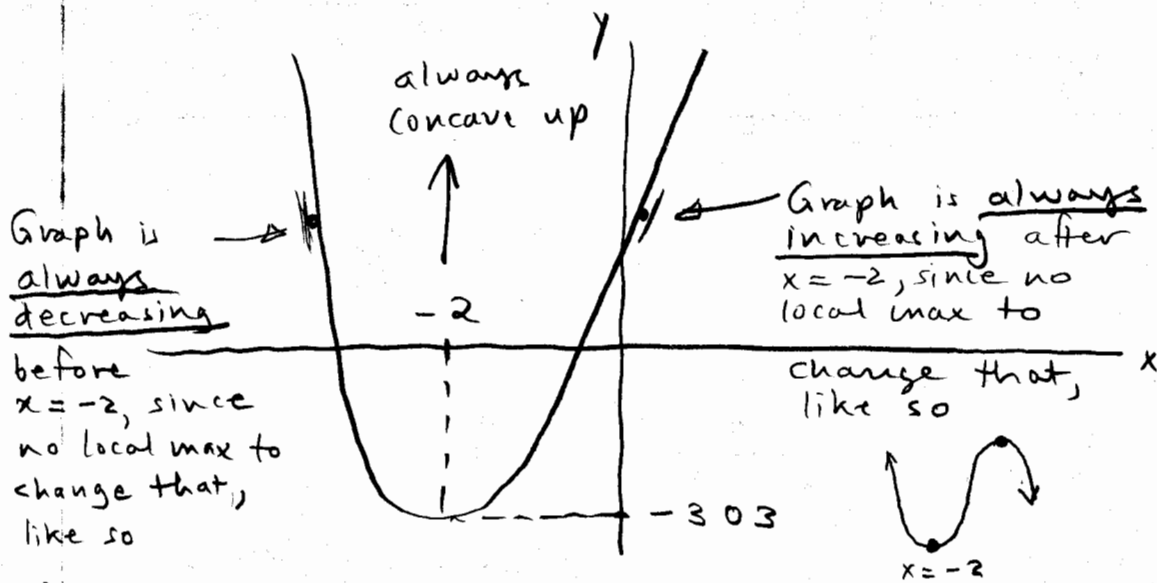 y
always
concave up
Graph is
always
decreasing
before
x = -2, since
no local max to
change that,
like so
-2
Graph is always
increasing after
x = -2, since no
local max to
change that,
like so
x
-303
x = -2